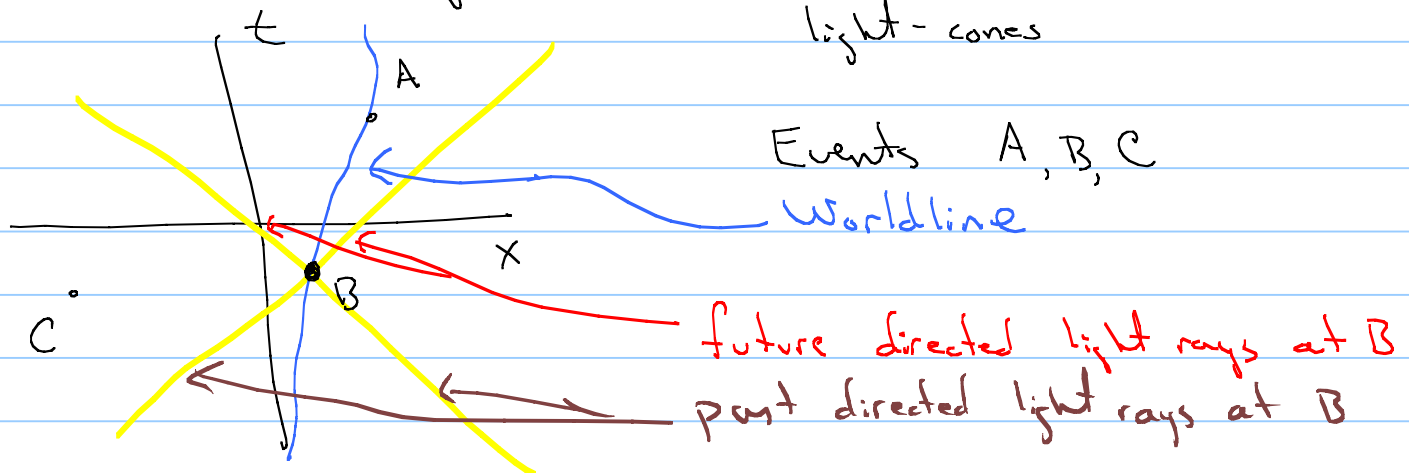 t
light-cones
A
Events A, B, C
Worldline
x
B
C
future directed light rays at B
past directed light rays at B